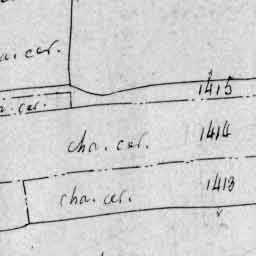 cer.
1415
cer.
cha. cer. 1414
cha. cer. 1413